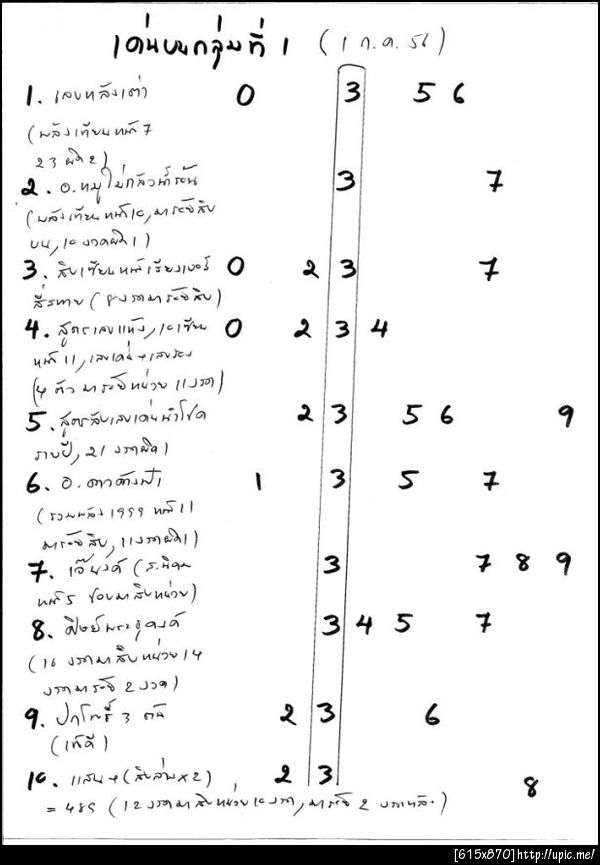 เด่นบนกลุ่มที่ 1 (1 ก.ค. 56)
1. เลขหลังเต่า 0 3 5 6
(พลังเทียนหน้า 7
23 ผิด 2)
2. อ.หมูไม่กลัวน้ำร้อน 3 7
(พลังเทียนหน้า 10,
บน, 10 งวดผิด 1)
3. สิบเซียนหน้าเรียงเบอร์ 0 2 3 7
สี่รหาย (8 งวด
4. สูตรเลขแห้ง, 10 เซียน 0 2 3 4
หน้า 11, เลขเด่น + เลขรอง
(4 ตัว หน่วย 11 งวด)
5. สูตรลับเลขเด่นนำโชค 2 3 5 6 9
รายปี, 21 งวดผิด 1
6. อ.ดาวค้างฟ้า 1 3 5 7
(รวมพลัง 1999 หน้า 11
11 งวดผิด 1)
7. 3 7 8 9
หน้า 5 ชอบมาสิบหน่วย)
8. ศิษย์พระธุดงค์ 3 4 5 7
(16 งวดมาสิบหน่วย 14
งวด 2 งวด)
9. 3 2 3 6
10. แสน + (สิบล่าง x 2) 2 3 8
= 489 (12 งวดมาสิบหน่วย 10 งวด, 2 งวดหลัง)
[615x870]http://upic.me/